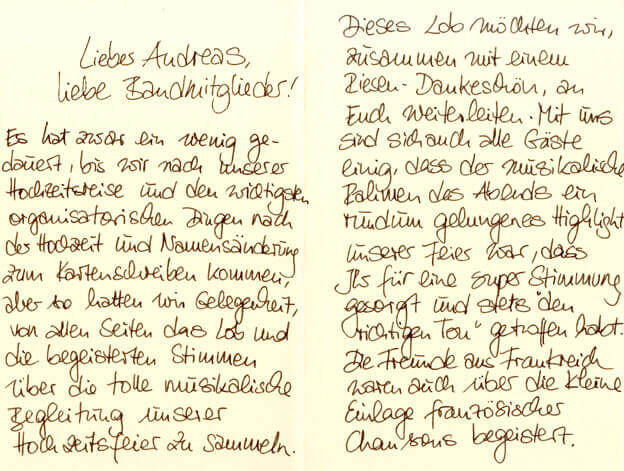 Liebes Andreas,
liebe Bandmitglieder!
Es hat zwar ein wenig ge-
dauert, bis wir nach unserer
Hochzeitsreise und den wichtigsten
organisatorischen Dingen nach
der Hochzeit und Namensänderung
zum Kartenschreiben kommen,
aber so hatten wir Gelegenheit,
von allen Seiten das Lob und
die begeisterten Stimmen
über die tolle musikalische
Begleitung unserer
Hochzeitsfeier zu sammeln.
Dieses Lob möchten wir,
zusammen mit einem
Riesen-Dankeschön, an
Euch weiterleiten. Mit uns
sind sich auch alle Gäste
einig, dass der musikalische
Rahmen des Abends ein
rundum gelungenes Highlight
unserer Feier war, dass
Ihr für eine super Stimmung
gesorgt und stets "den
richtigen Ton" getroffen habt.
Die Freunde aus Frankreich
waren auch über die kleine
Einlage französischer
Chansons begeistert.